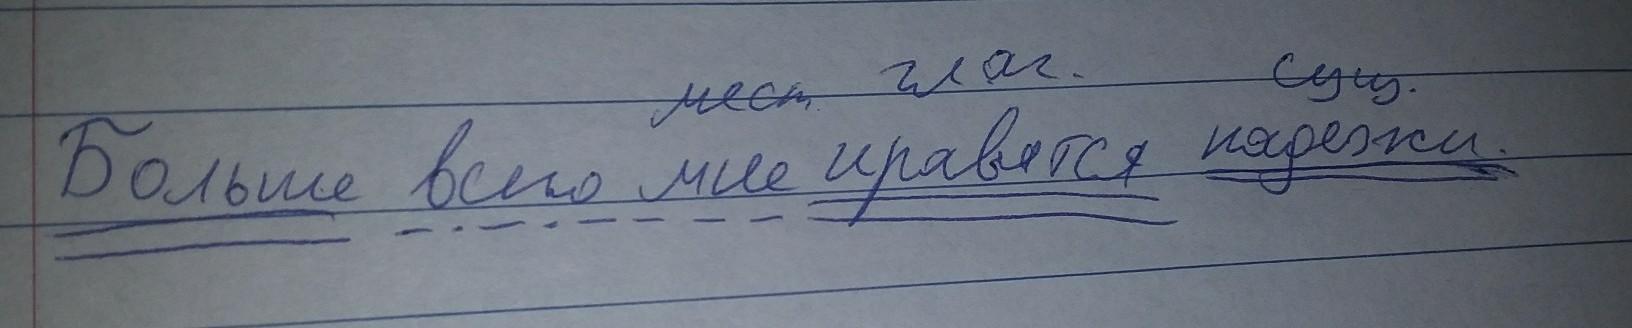 мест. глаг. сущ.
Больше всего мне нравятся нарезки.